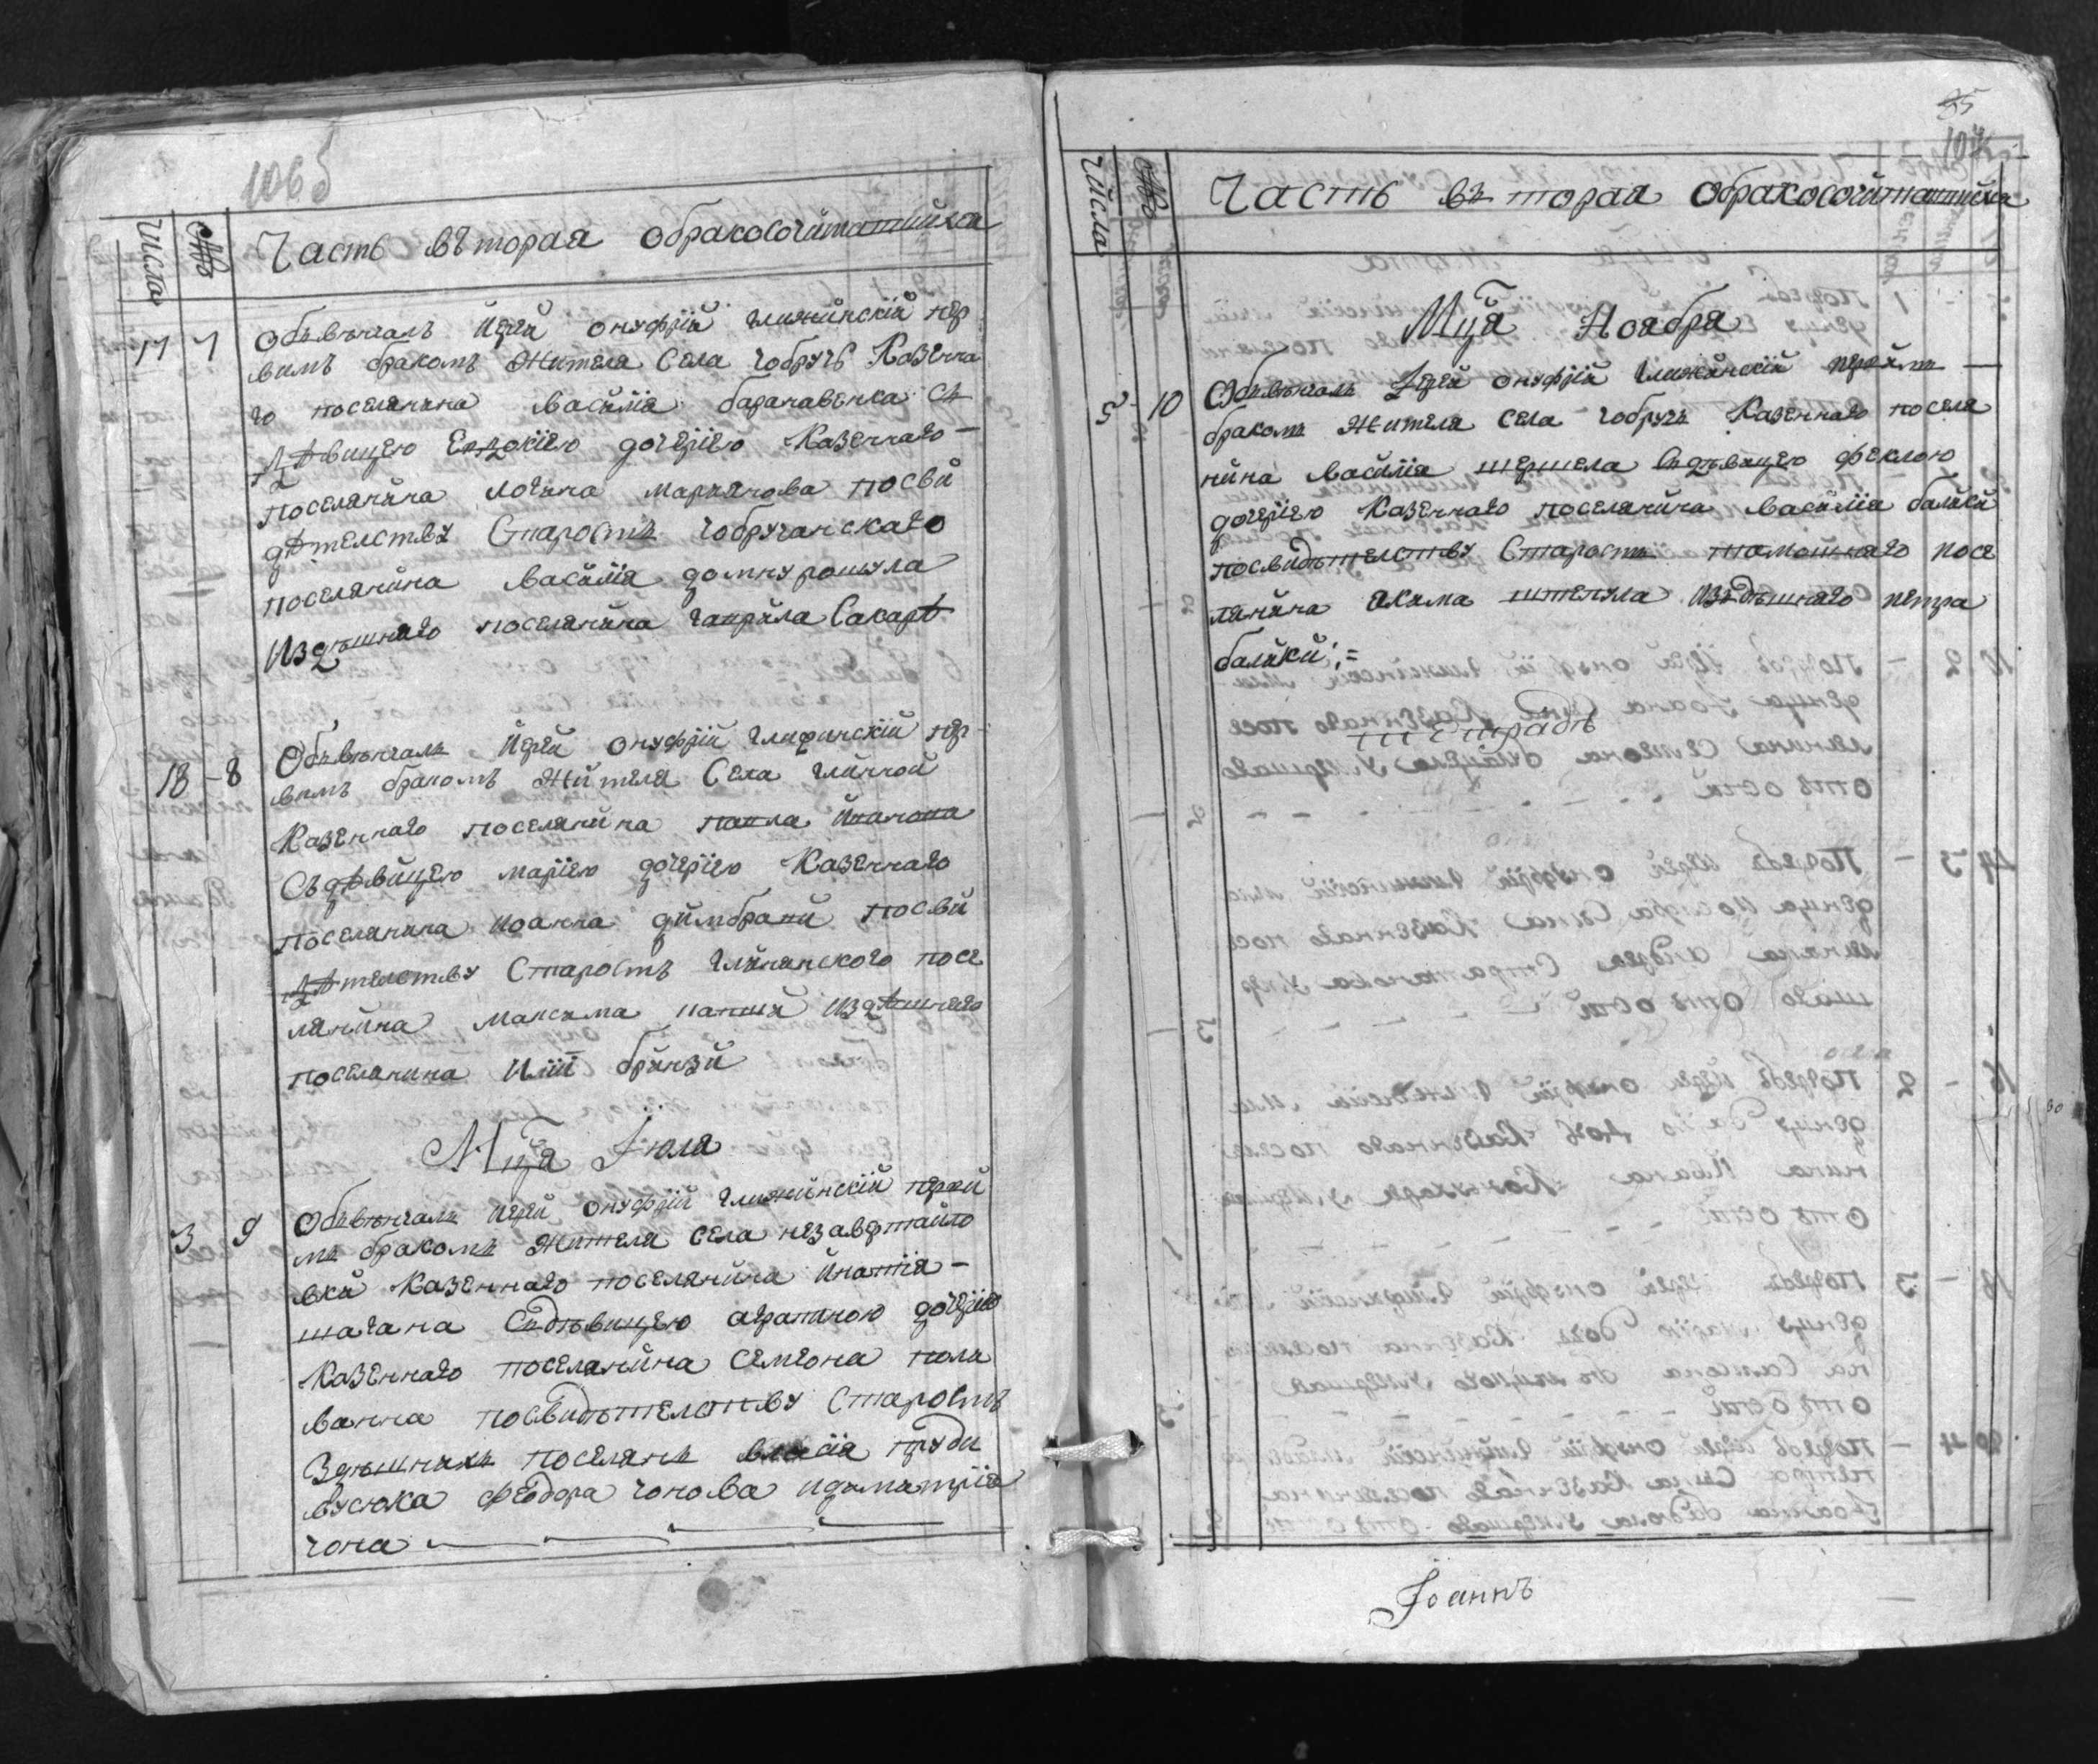 106 б
Числа № Часть вторая обракосочитатшихся
17 7 Обьвѣнчалъ Иерей онуфрій глижинскій пер
вимъ бракомъ Жителя Села чобручь Казенна
го поселянина василія барачавенка Съ
дѣвицею Евдокіею дочеріею Казеннаго
поселянина логина марianова посви
дѣтелству Старостъ чобручанскаго
поселянина василія домнурошула
Издѣшнаго поселянина гаврила Сакарѣ
18 - 8 Обьвѣнчалъ Иерей онуфрій глижинскій пер
вимъ бракомъ Жителя Села глиной
Казеннаго поселянина павла
Съдѣвицею маріею дочеріею Казеннаго
поселянина Иоанна посви
дѣтелству Старостъ глинянского посе
лянина максима издѣшнаго
поселянина Иліи бринзи
Мца Іюля
3 9 Обьвѣнчалъ Иерей онуфрій глижинскій перви
мъ бракомъ Жителя Села незавертайло
вки Казеннаго поселянина Игнатія -
шагана Съдѣвицею аграпиною дочеріею
Казеннаго поселянина Семиона пола
ванна посвидѣтелству Старостъ
Здѣшнихъ поселянъ власія
вусюка феодора чонова идимитрія
чона
85
Числа № Часть въ торая обракосочитатшихся
Мца Ноабря
5 - 10 Обьвѣнчалъ Іерей онуфрій глижинскій первимъ —
бракомъ Жителя Села чобручъ Казеннаго поселя
нина василія Съдѣвицею феклою
дочеріею Казеннаго поселянина василія балики
посвидѣтелству Старости тамошнаго посе
лянина акима Издѣшнаго петра
балики ; =
Іоаннъ